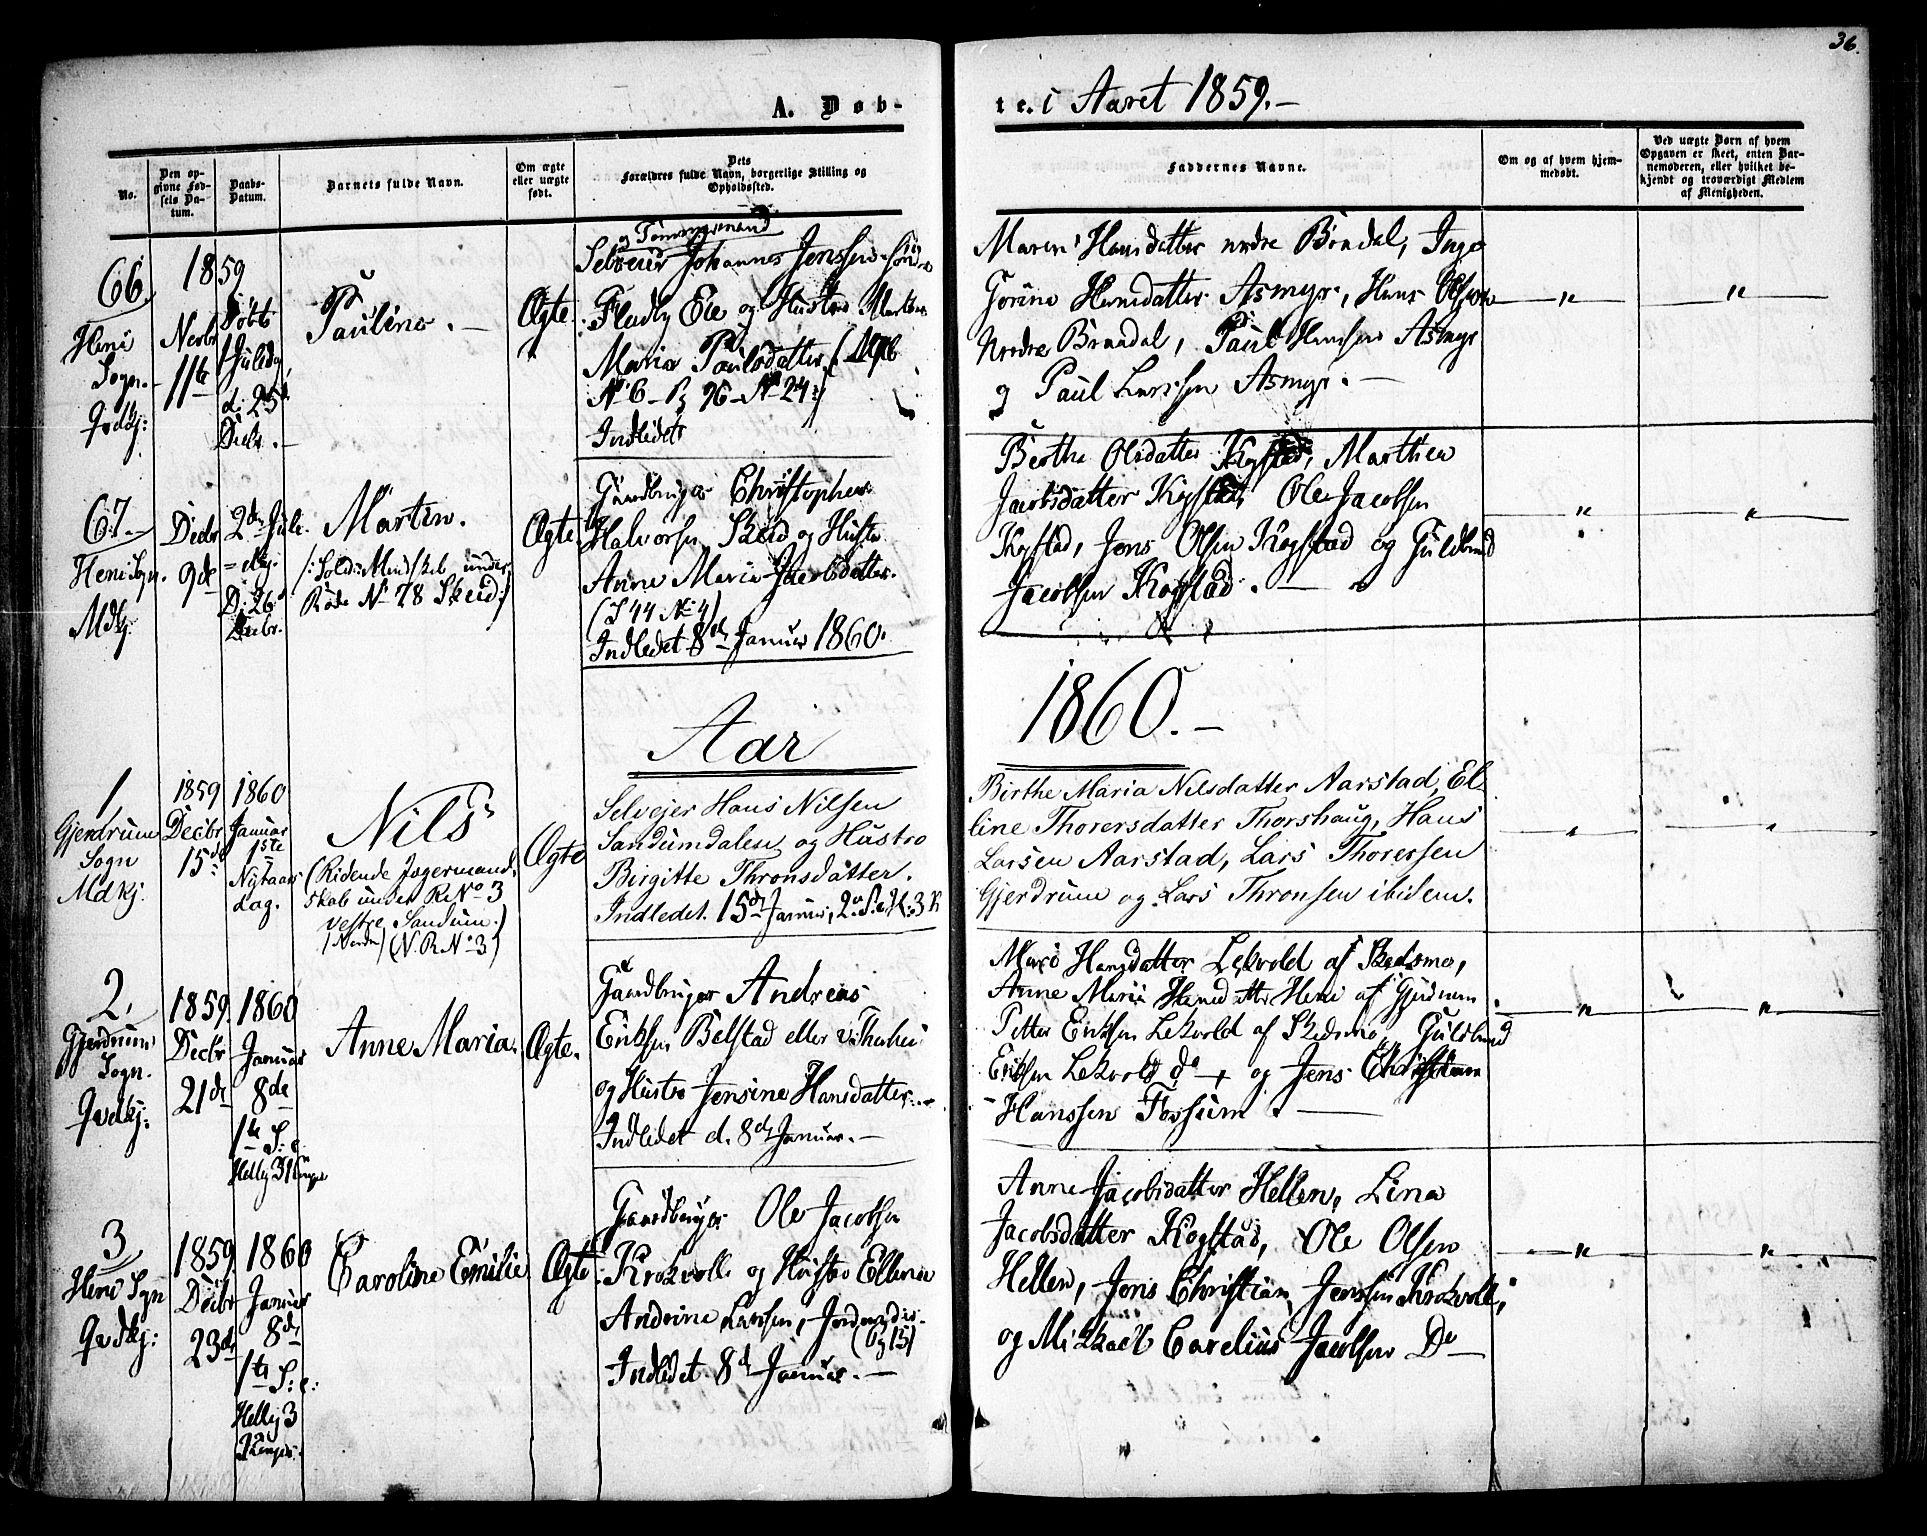 36.
A. Døb-
te. i Aaret 1859.-
No.
Den op-
givne Fød-
sels Da-
tum.
Daabs-
Datum.
Barnets fulde Navn.
Om ægte
eller uægte
født.
Dets
Forældres fulde Navn, borgerlige Stilling og
Opholdssted.
Faddernes Navne.
Om og af hvem hjem-
medøbt.
Ved uægte Børn af hvem
Opgaven er skeet, enten Bar-
nemoderen, eller hvilket be-
kjendt og troværdigt Medlem
af Menigheden.
66
Heni
Sogn.
Qvdkj:
1859
Novbr
11te
Døbt
Juledag
d: 25d
Decbr.
Pauline.
Ægte
og Tømmermand
Selveier Johannes Jenssen
Fladby Eie og Hustro
Maria Paulsdatter.
N: 6 - Pg 96 - No 24:)
Indledet
Maren Hansdatter nedre Brådal, Inge
Torine Hansdatter Asmyr, Hans Olsen
Nedre Braadal, Paul Hansen Asmyr
og Paul Larssen Asmyr.
67.
Heni Sogn.
Mdkj.
Decbr
9de
2den Jule
= dag.
D: 26
Decbr.
Martin.
/: Solds: Mandskab under
Rode No 78 Skeid:/
Ægte
Gaardbruger Christopher
Halvorsen Skeid og Hustro
Anne Maria Jacobsdatter.
(I 44 No 4)
Indledet 8de Januar 1860.
Berthe Olsdatter Kogstad, Marthea
Jacobsdatter Kogstad, Ole Jacobsen
Kogstad, Jens Olsen Kogstad og Guldbrand
Jacobsen Kogstad.
Aar
1860.-
1
Gjerdrum
Sogn
Mdkj.
1859
Decibr
15de
1860
Januar
1ste
Nytaars
dag.
Nils
(Ridende Jægermand,
skab under R. No 3
vestre Sandum.)
/Nordre/ (N. R No 3)
Ægte
Selvejer Hans Nilsen
Sandumdalen og Hustro
Birgitte Thronsdatter.
Indledet. 15de Januar, 2. S. e. H: 3 K
Birthe Maria Nilsdatter Aarstad, El-
line Thorersdatter Thorshaug, Hans
Larsen Aarstad, Lars Thoresen
Gjerdrum og Lars Thronsen ibidem.
2.
Gjerdrum
Sogn.
Qvdkj:
1859.
Decbr
21de
1860
Januar
8de
1te S: e.
Hellig 3 Konger
Anne Maria.
Ægte.
Gaardbruger Andreas
Eriksen Belstad eller
og Hustro Jensine Hansdatter.
Indledet d. 8de Januar.
Mari Hansdatter Lekvold af Skedsmo,
Anne Maria Hansdatter Heni af Gjerdrum
Petter Eriksen Lekvold af Skedsmo, Guldbrand
Eriksen Lekvold do og Jens Christian
Hanssen Fossum.
3
Heni Sogn
Qvdkj:
1859
Decbr
23de
1860
Januar
8de
1te S: e:
Hellig 3
Konger.
Caroline Emilie
Ægte
Gaardbruger Ole Jacobsen
Krokvoll og Hustro Ellena
Andrine Larsen,
(Pg 15)
Indledet 8de Januar.
Anne Jacobsdatter Hellen, Lina
Jacobsdatter Kogstad, Ole Olsen
Hellen, Jens Christian Jenssen Krokvoll,
og Mikkael Carelius Jacobsen Do